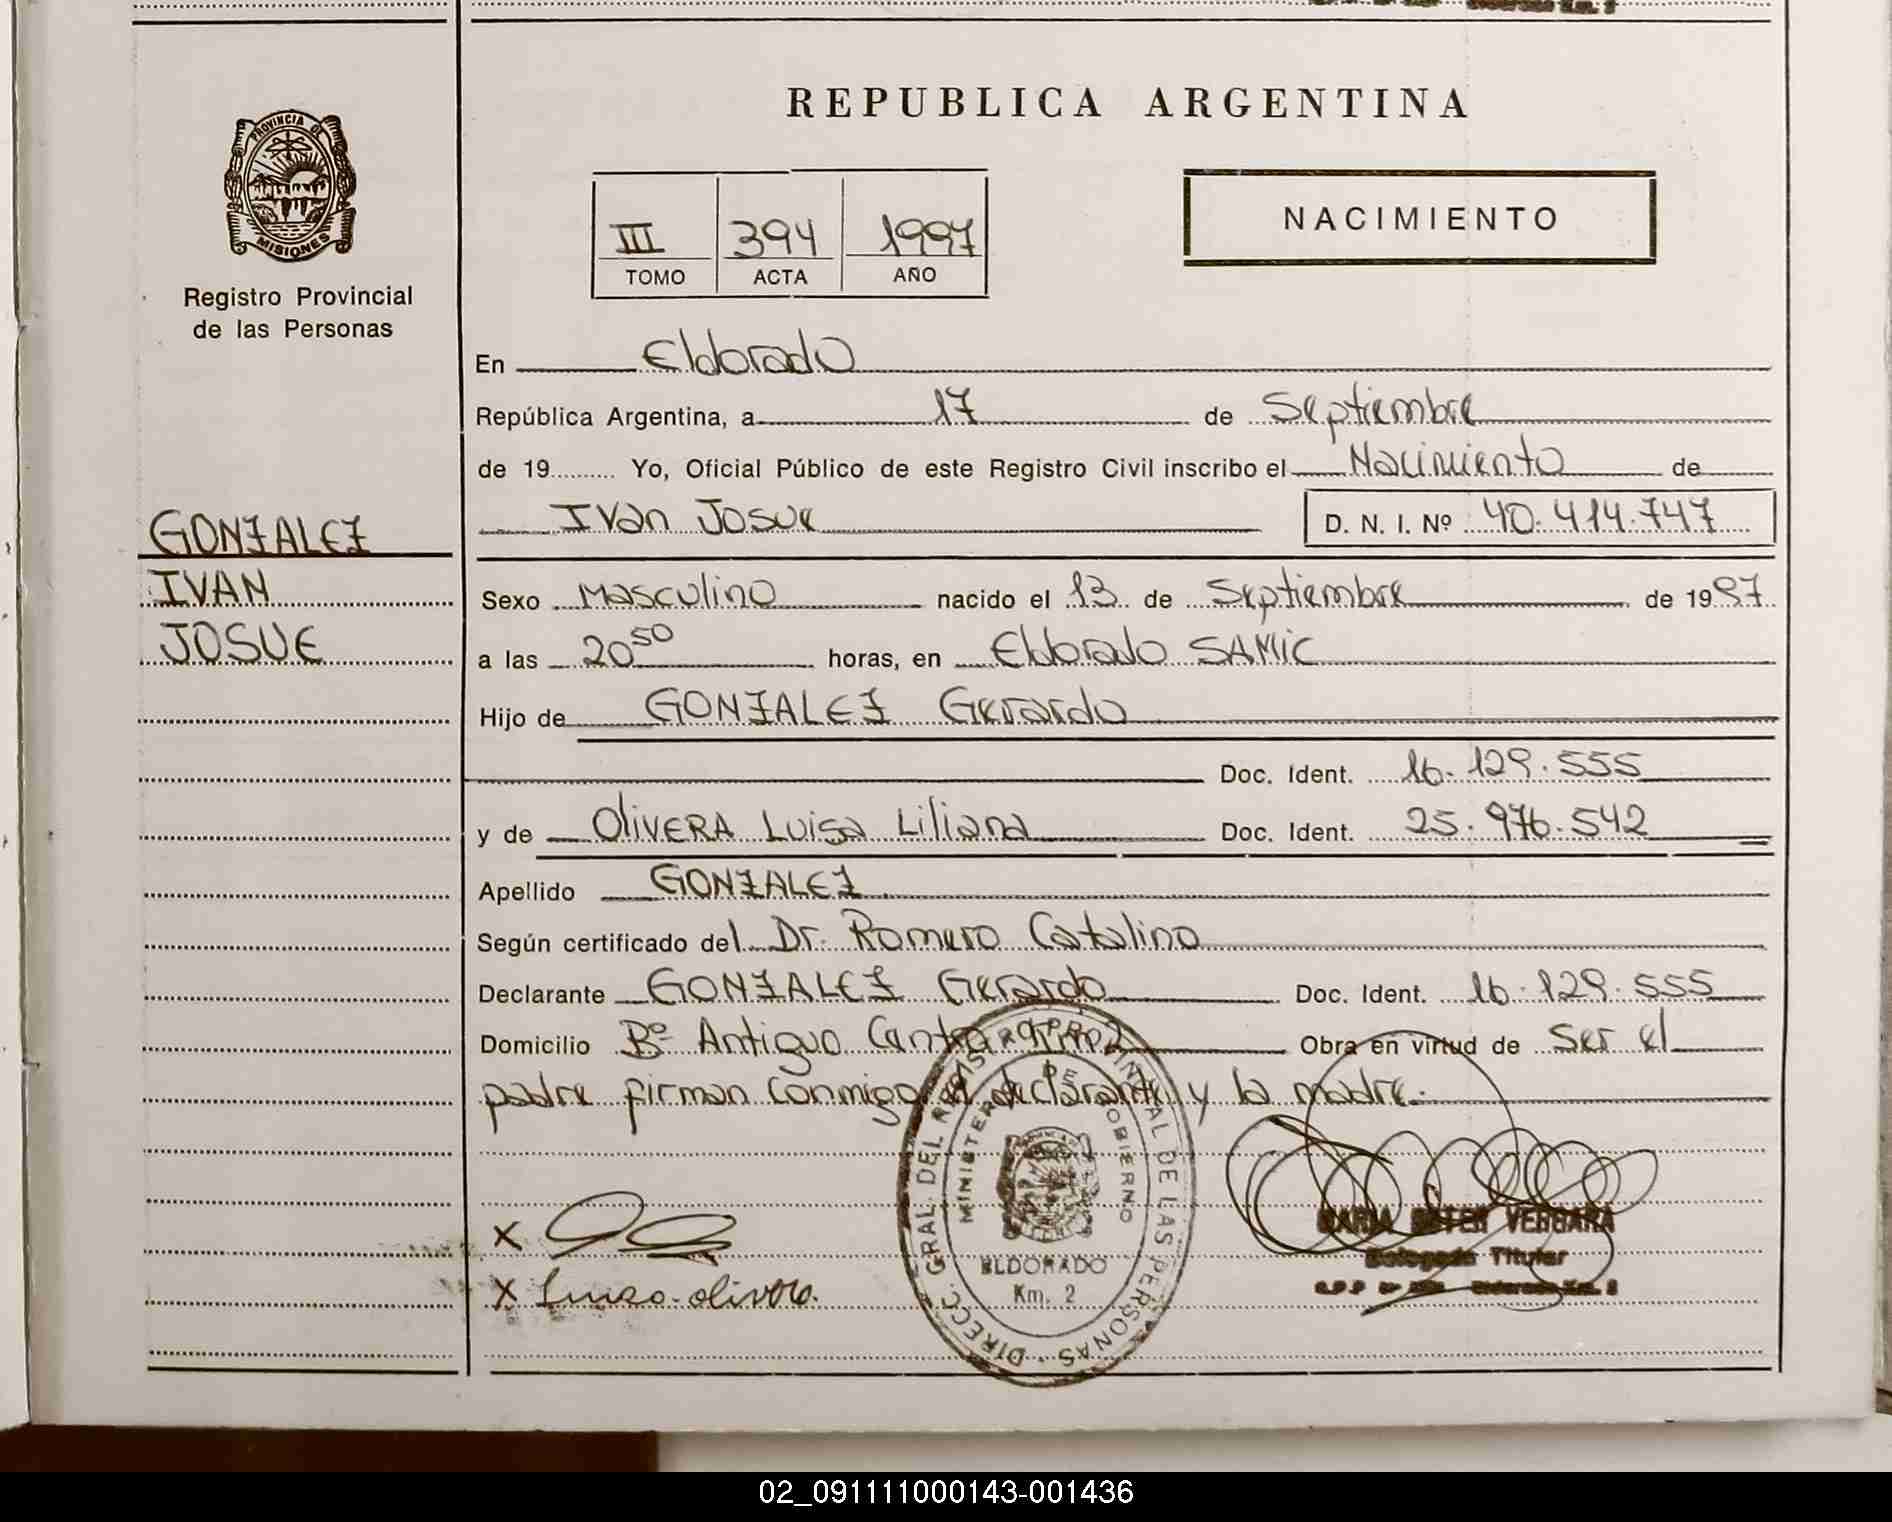 REPUBLICA ARGENTINA
PROVINCIA DE
MISIONES
Registro Provincial
de las Personas
III 394 1997
TOMO ACTA AÑO
NACIMIENTO
En Eldorado
República Argentina, a 17 de Septiembre
de 19......... Yo, Oficial Público de este Registro Civil inscribo el Nacimiento de
Ivan Josue D. N. I. Nº 40.414.747
GONZALEZ
IVAN
JOSUE
Sexo Masculino nacido el 13 de Septiembre de 1997
a las 20 50 horas, en Eldorado SAMIC
Hijo de GONZALEZ Gerardo
Doc. Ident. 16.129.555
y de OliVERA Luisa Liliana Doc. Ident. 25.976.542
Apellido GONZALEZ
Según certificado del Dr. Romero Catalino
Declarante GONZALEZ Gerardo Doc. Ident. 16.129.555
Domicilio Bº Antiguo Obra en virtud de Ser el
padre firman conmigo el declarante y la madre.
DIRECC. GRAL. DEL REGISTRO PROVINCIAL DE LAS PERSONAS
MINISTERIO DE GOBIERNO
ELDORADO
Km. 2
X
X Luisa olivera.
MARIA ESTER VERGARA
Delegada Titular
Eldorado Km. 2
02_091111000143-001436